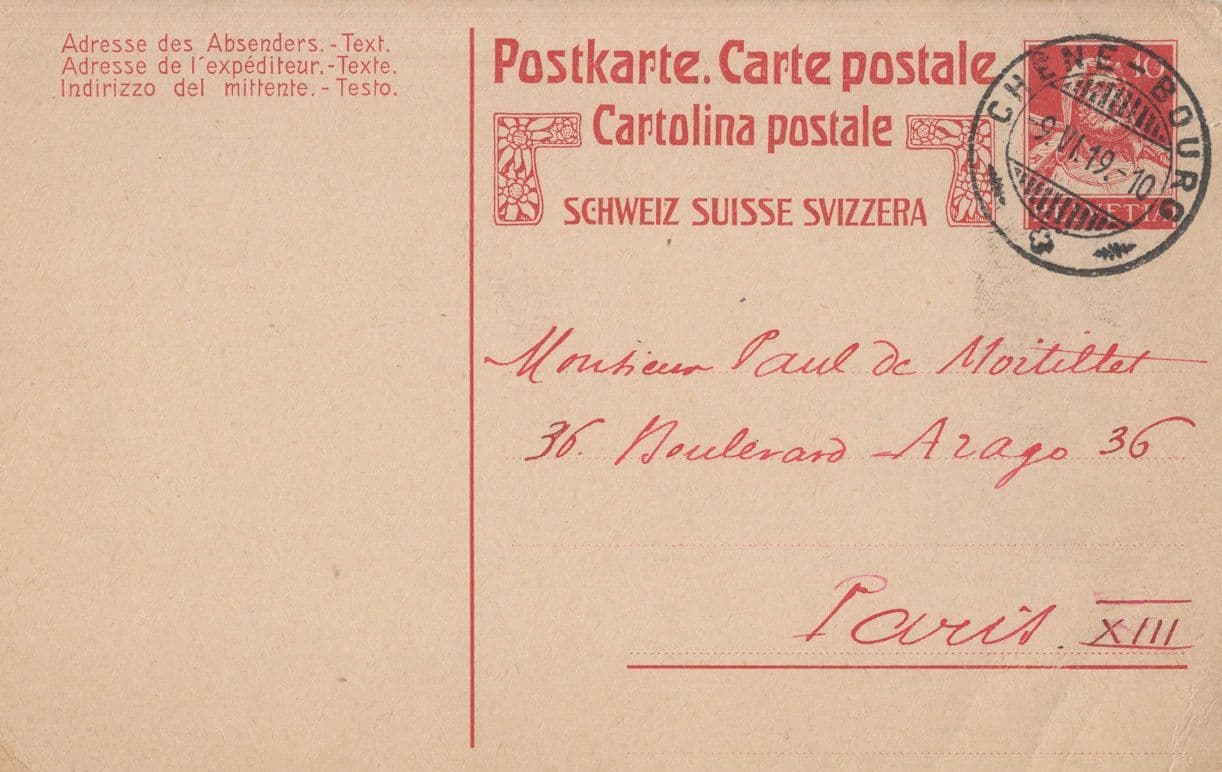 Adresse des Absenders.-Text.
Adresse de l'expéditeur.-Texte.
Indirizzo del mittente.-Testo.
Postkarte. Carte postale
Cartolina postale
SCHWEIZ SUISSE SVIZZERA
CHÊNE-BOURG
-9.VI.19.-10
10
HELVETIA
Monsieur Paul de Mortillet
36. Boulevard Arago 36
Paris. XIII